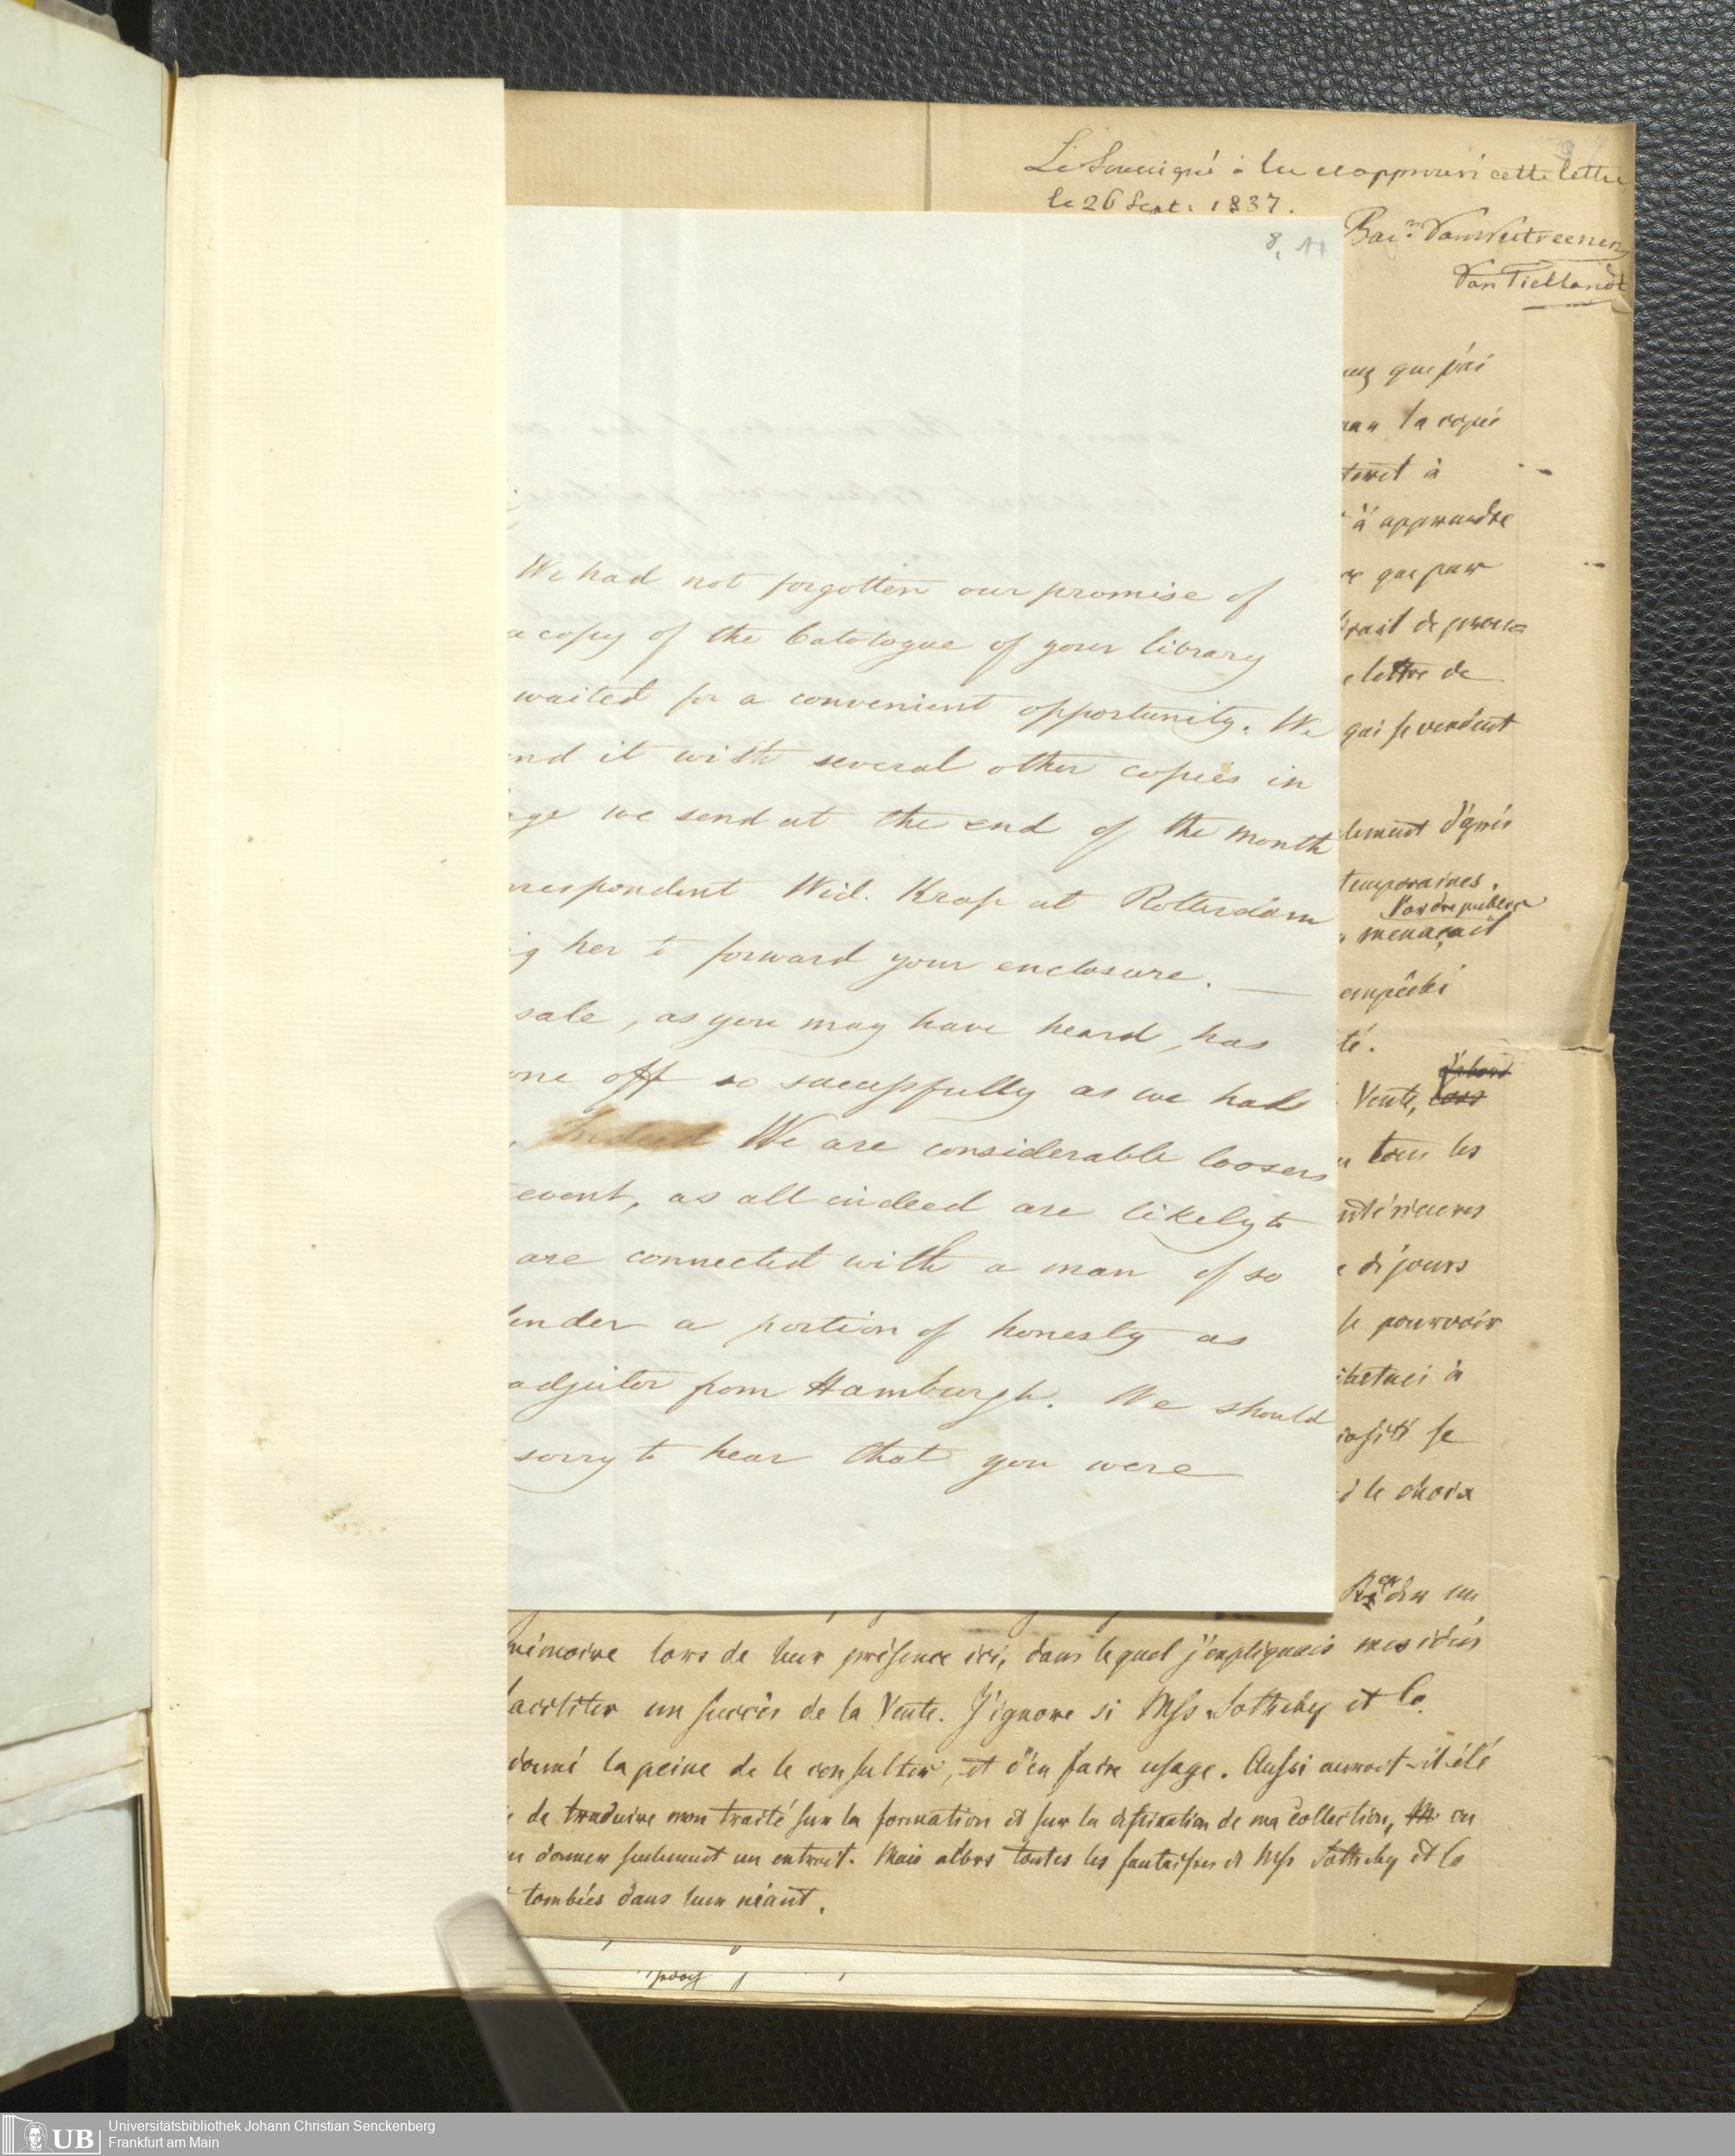 Le Soussigné à lu et approuvé cette lettre
le 26 Sept. 1837.
Bar.ⁿ Van Westreenen
Van Tiellandt
8.
We had not forgotten our promise of
a copy of the Catalogue of your library
waited for a convenient opportunity. We
nd it with several other copies in
age we send at the end of the month
rrespondent Wid. Krap at Rotterdam
g her to forward your enclosure. —
sale, as you may have heard, has
one off so successfully as we had
Indeed We are considerable loosers
event, as all indeed are likely to
are connected with a man of so
lender a portion of honesty as
adjutor from Hamburgh. We should
sorry to hear that you were
que j'ai
la copie
à
à apprendre
que par
lettre de
qui se vendent
lement d'après
temporaines.
l'ordre public
menaçait
empêché
té.
Vente,
tous les
antérieures
de jours
se pouvoir
à
se
le choix
un
mémoire lors de leur présence ici, dans lequel j'expliquais mes idées
faciliter un succès de la Vente. J'ignore si Mss. Sotheby et Co.
donné la peine de le consulter, et d'en faire usage. Aussi auroit-il été
de traduire mon traité sur la formation et sur la destination de ma collection, ou
en donner seulement un extrait. Mais alors toutes les fantaisies de Mss Sotheby et Co
tombées dans leur néant.
UB
Universitätsbibliothek Johann Christian Senckenberg
Frankfurt am Main